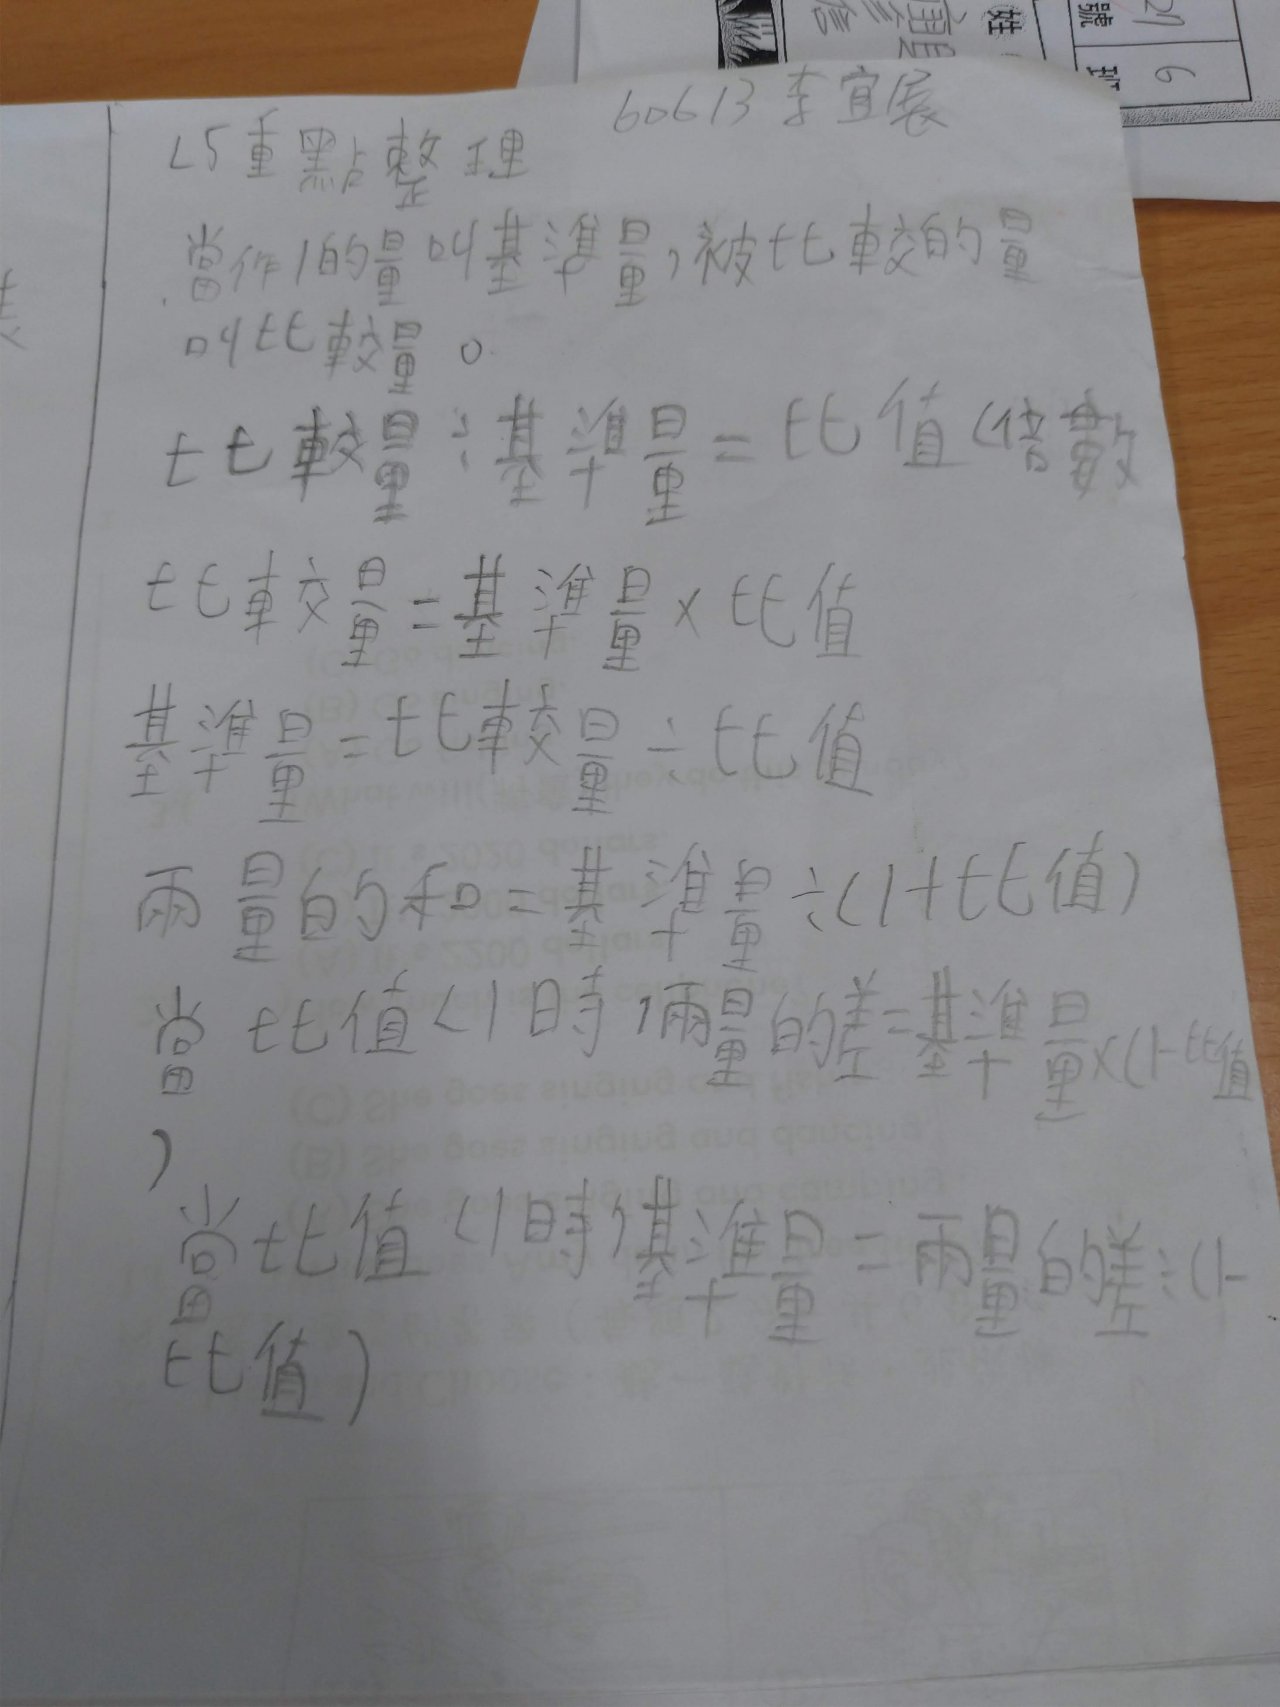 27 6
號 班
姓
信
60613 李宜展
L5重點整理
當作1的量叫基準量,被比較的量
叫比較量。
比較量÷基準量=比值(倍數
比較量=基準量×比值
基準量=比較量÷比值
兩量的和=基準量÷(1+比值)
當比值<1時,兩量的差=基準量×(1-比值
)
當比值<1時,基準量=兩量的差÷(1-
比值)